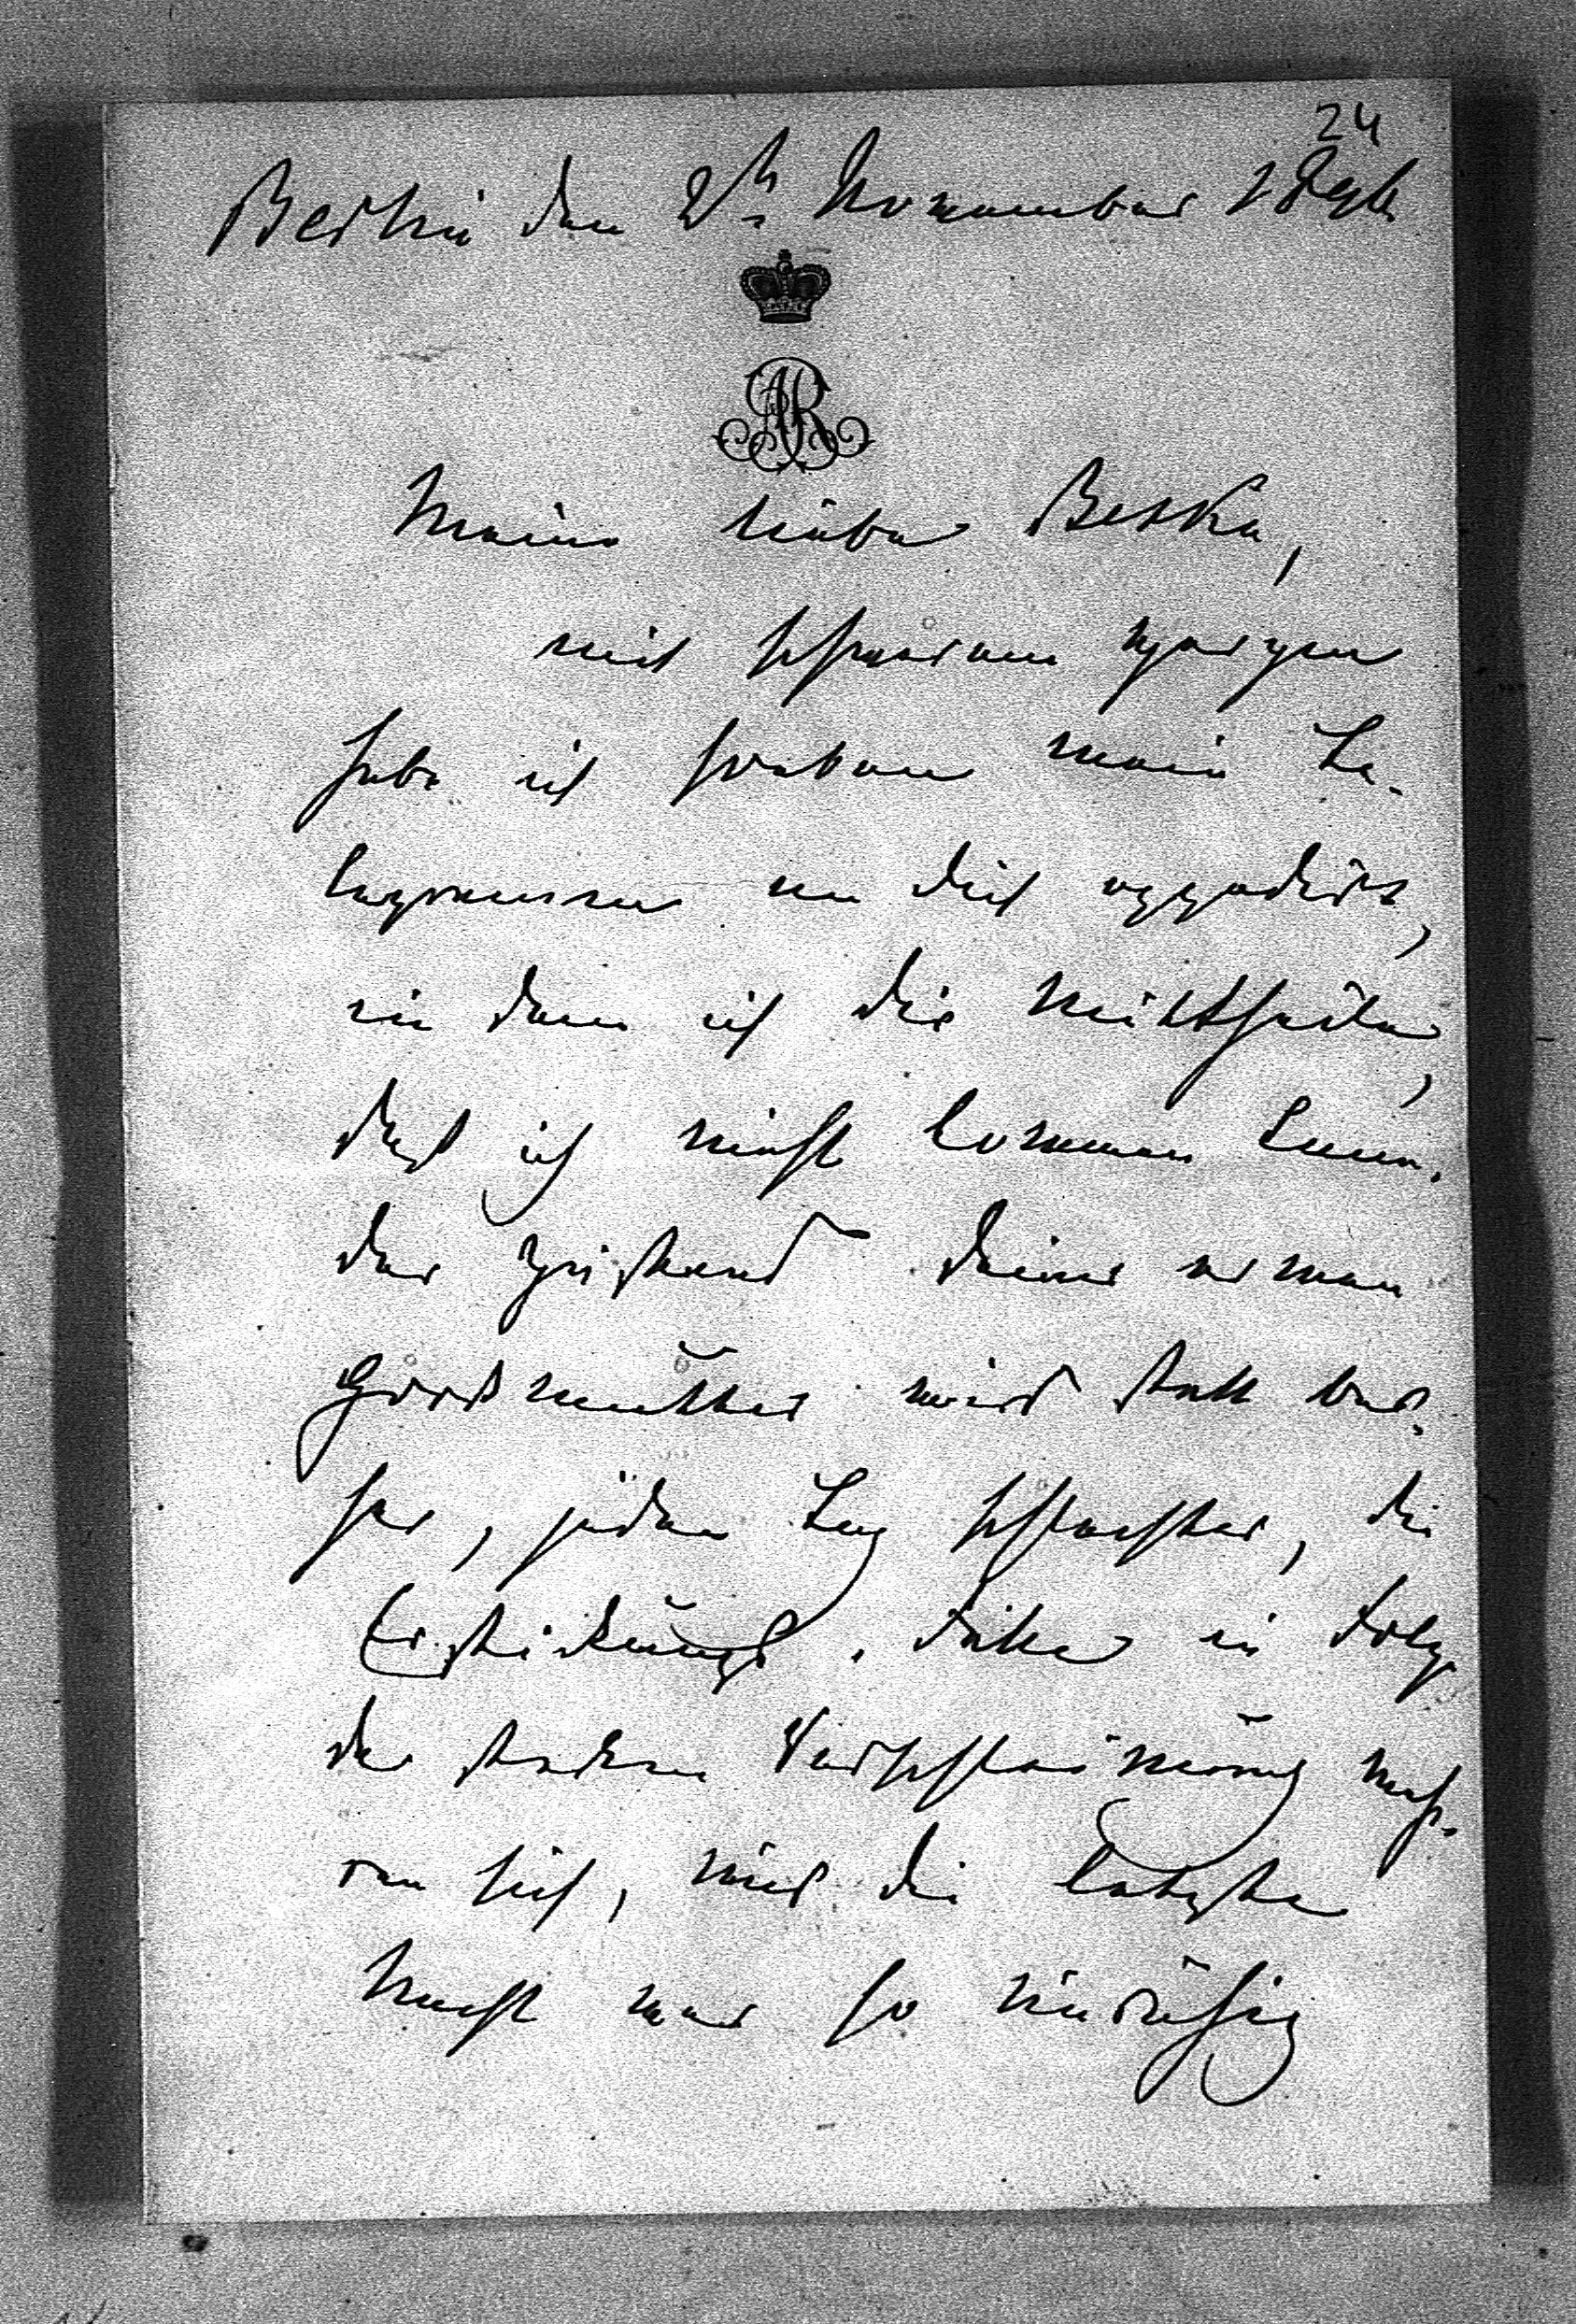 24
Berlin den 2ten November
AR
Meine liebe Berka,
mit schwerem Herzen
habe ich soeben mein Te-
legramm an dich expedirt,
in dem ich dir mittheile,
daß ich nicht kommen kann.
der Zustand deiner armen
Großmutter wird statt bes-
ser, jeden Tag schlechter, die
Erstickungs-Anfälle in Folge
der starken Verschleimung meh-
ren sich, und die letzte
Nacht war so unruhig